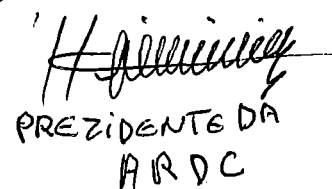 PREZIDENTE DA
ARDC